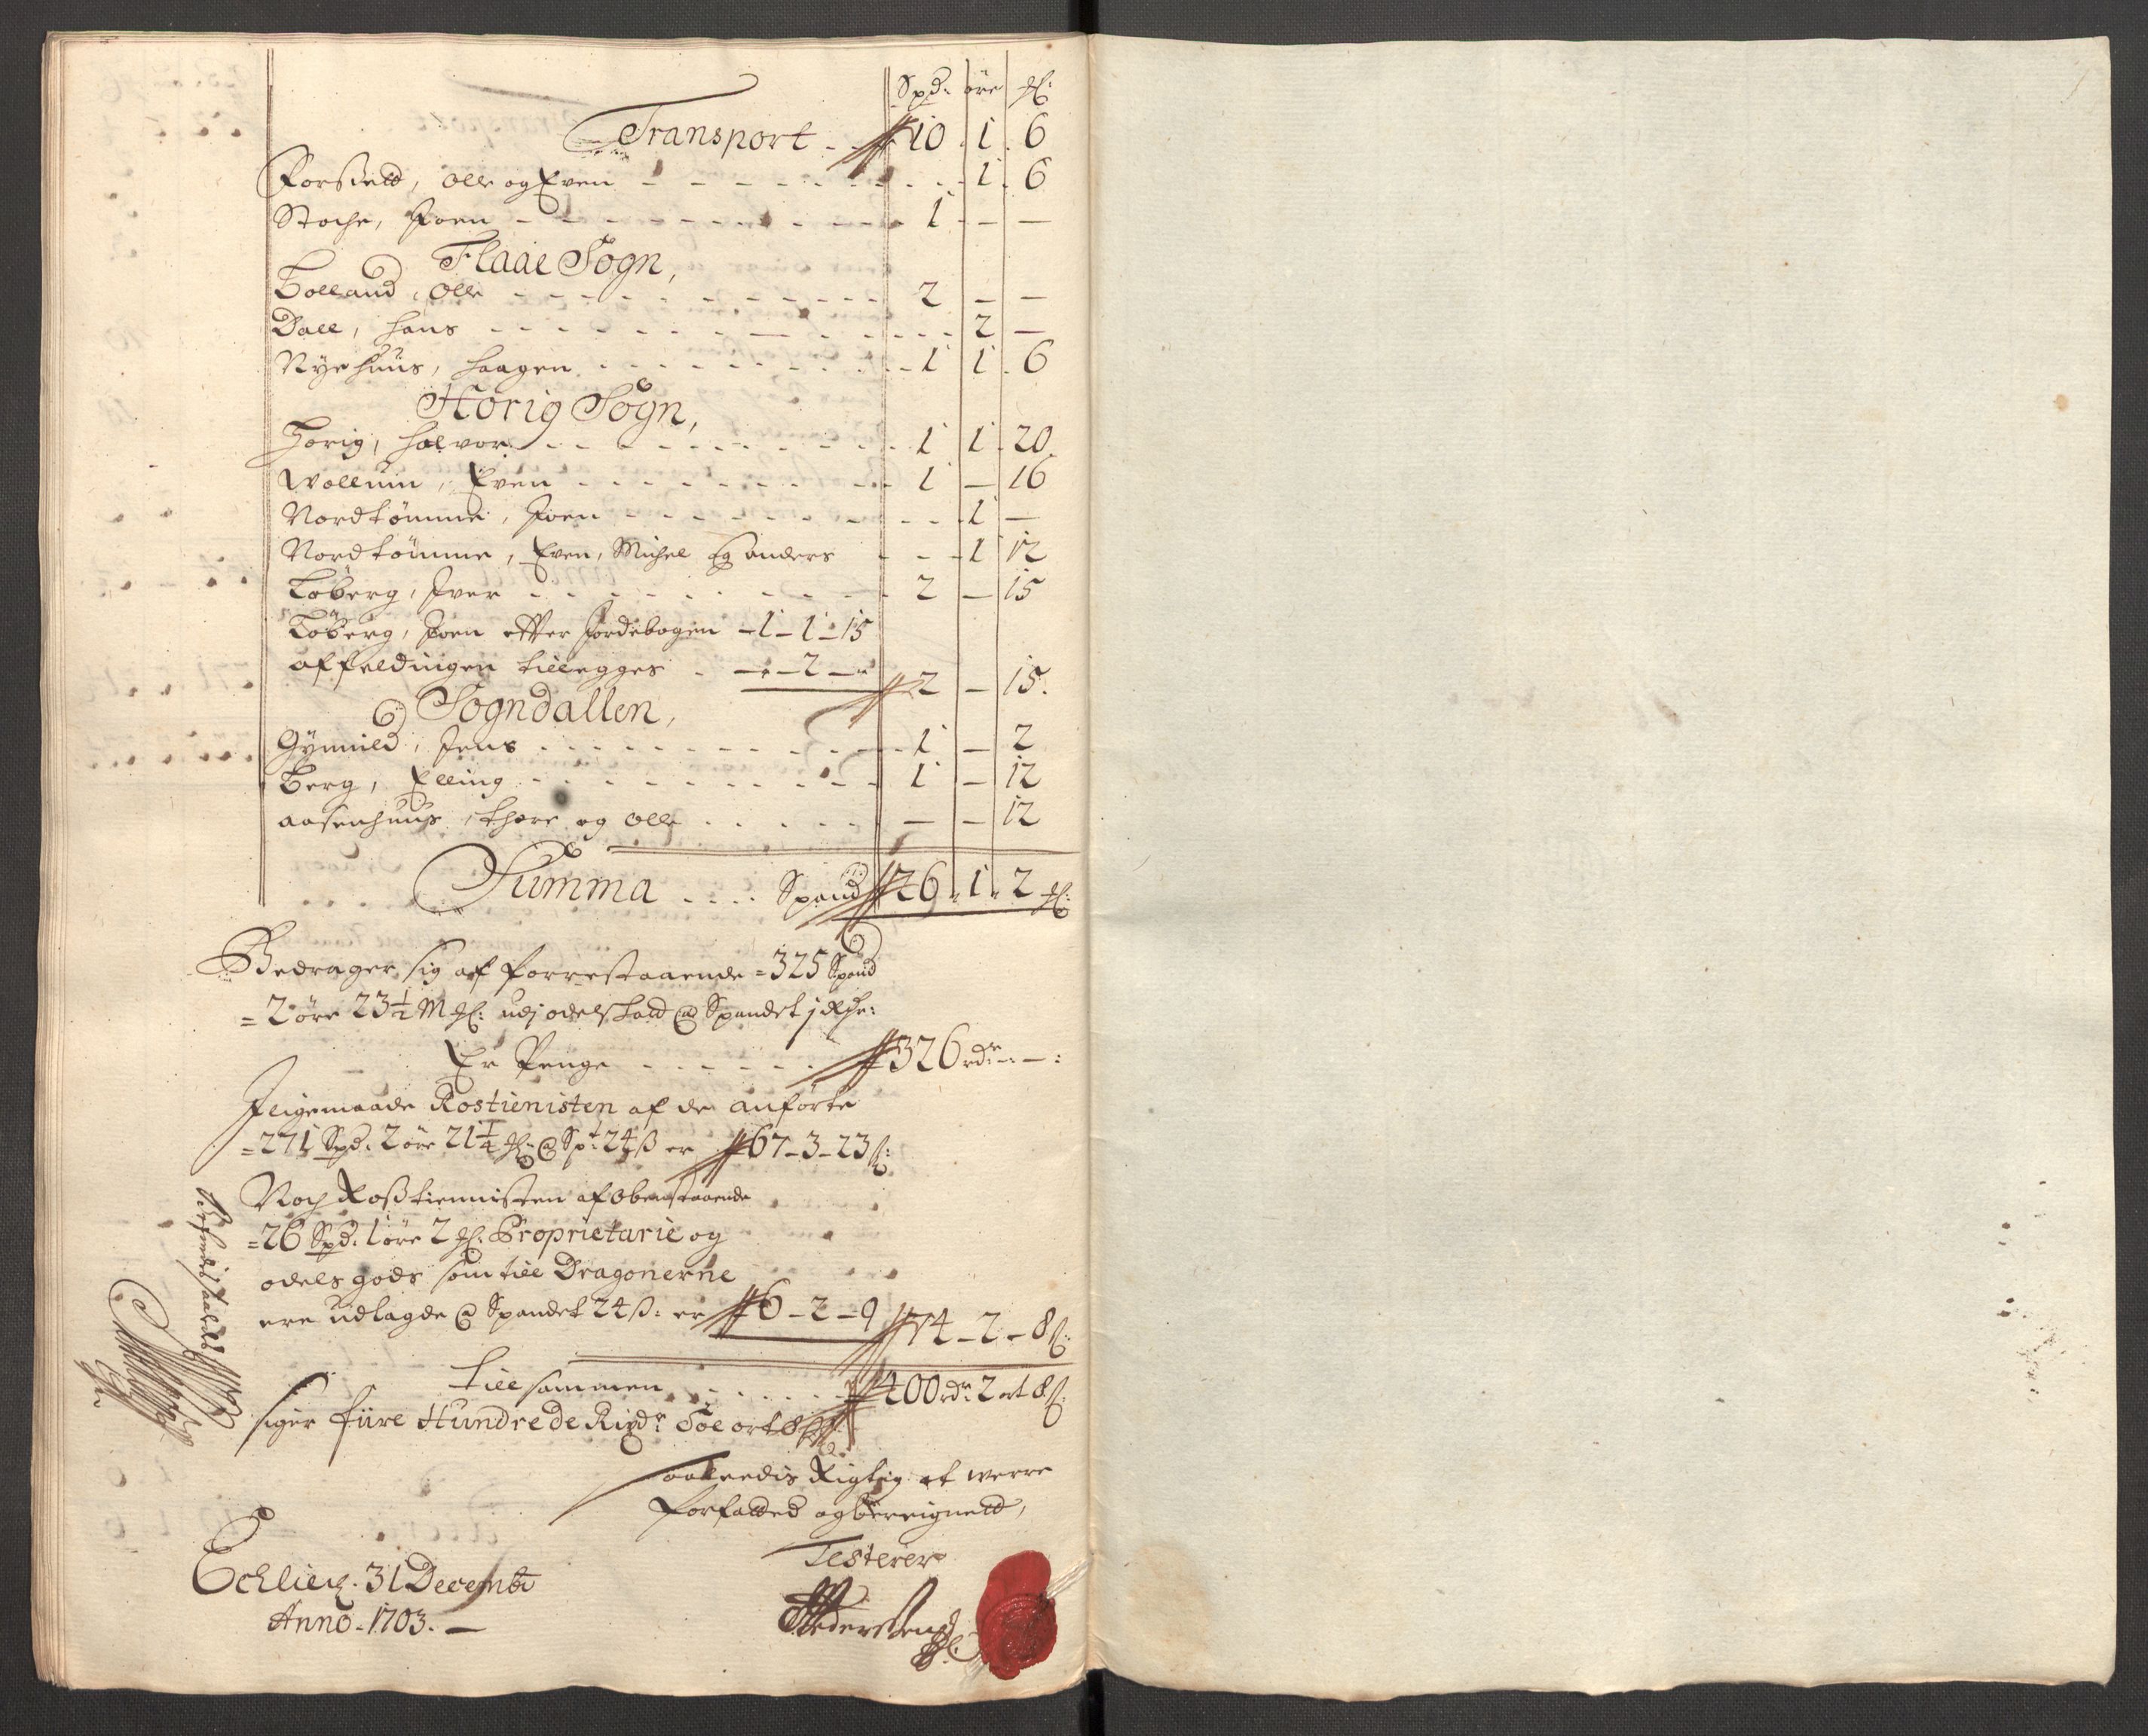 Spd: öre
Transport 10 1 6
Forseld, Olle og Even 1 6
Stoche, Joen 1 - -
Flaae Sogn,
Bolland, Olle 2 - -
Dall, Hans 2 -
Nyehuus, Haagen 1 1 6
Hörig Sogn,
Horig, Halvor 1 1 20
Wollum, Even 1 - 16
Nordtömme, Joen 1 -
Nordtömme, Even, Michel og Anders 1 12
Löberg, Iver 2 - 15
Löberg, Joen efter Jordebogen - 1 - 1 - 15
affeldingen tillegges - 2 - 2 - 15.
Sogndallen,
Gynnild, Jens 1 - 2
Berg, Elling 1 - 12
Aasenhuus, Thore og Olle - - 12
Summa .... Spand 26 1 2
Bedrager sig af forrestaaende = 325 Spand
= 2 öre 23½ M udj odelskald @ Spandet 1
Er Penge 326 rdr - : - :
J ligemaade Rostienisten af de anförte
= 271 Spd. 2 öre 21¼ @ Spd 24 ß er 67 - 3 - 23 ß:
Noch Rosstiennisten af obenstaaende
= 26 Spd. 1 öre 2 Proprietarie og
odels gods som till Dragonerne
ere udlagde @ Spandet 24 ß: er 6 - 2 - 9 74 - 2 - 8 ß:
Tillsammen 400 rdr 2 ort 8 ß.
siger fiire Hundrede Rixdr Toe ort 8 ß
Saaledis Rigtig at werre
forfatted og beregnett,
Testerer
Echlie 31 Decembr
Anno 1703. -